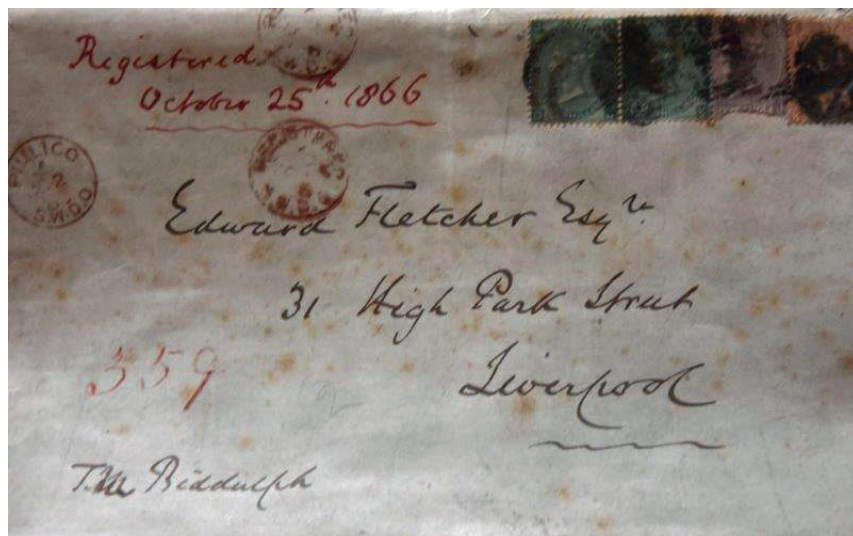 Registered
October 25th. 1866
PIMLICO
S.W.D.O
REGISTERED
Edward Fletcher Esqre.
31 High Park Street
Liverpool
359
T.M Biddulph